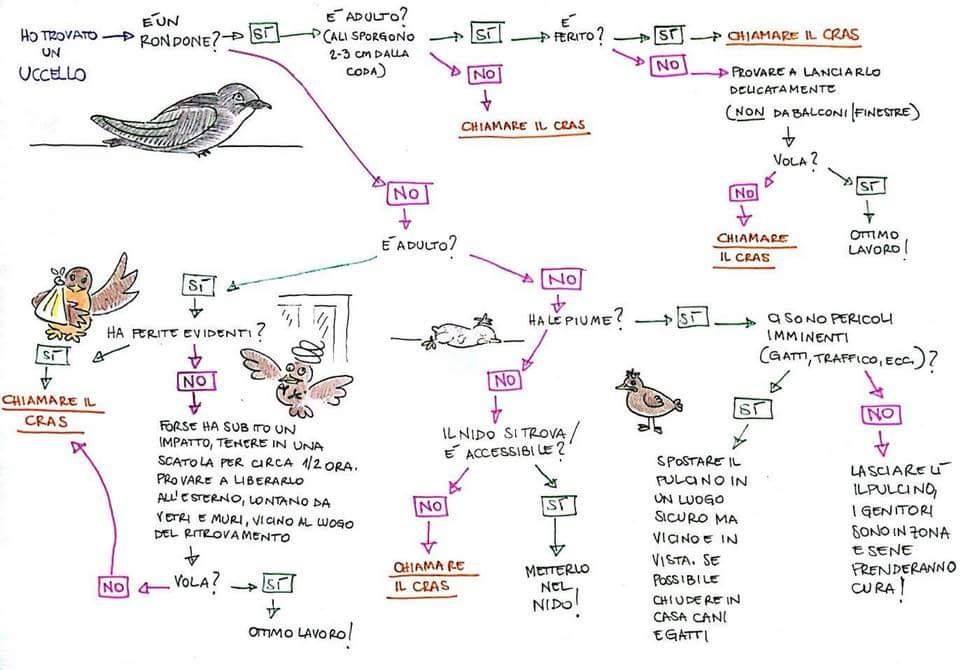 HO TROVATO
UN
UCCELLO
È UN
RONDONE?
SÍ
È ADULTO?
(ALI SPORGONO
2-3 CM DALLA
CODA)
SÍ
È
FERITO?
SÍ
CHIAMARE IL CRAS
NO
CHIAMARE IL CRAS
NO
PROVARE A LANCIARLO
DELICATAMENTE
(NON DA BALCONI/FINESTRE)
VOLA?
NO
CHIAMARE
IL CRAS
SÍ
OTTIMO
LAVORO!
NO
È ADULTO?
SÍ
HA FERITE EVIDENTI?
SÍ
CHIAMARE IL
CRAS
NO
FORSE HA SUBITO UN
IMPATTO, TENERE IN UNA
SCATOLA PER CIRCA 1/2 ORA.
PROVARE A LIBERARLO
ALL'ESTERNO, LONTANO DA
VETRI E MURI, VICINO AL LUOGO
DEL RITROVAMENTO
VOLA?
NO
SÍ
OTTIMO LAVORO!
NO
HA LE PIUME?
NO
IL NIDO SI TROVA/
È ACCESSIBILE?
NO
CHIAMARE
IL CRAS
SÍ
METTERLO
NEL
NIDO!
SÍ
CI SONO PERICOLI
IMMINENTI
(GATTI, TRAFFICO, ECC.)?
SÍ
SPOSTARE IL
PULCINO IN
UN LUOGO
SICURO MA
VICINO E IN
VISTA. SE
POSSIBILE
CHIUDERE IN
CASA CANI
E GATTI
NO
LASCIARE LÌ
IL PULCINO,
I GENITORI
SONO IN ZONA
E SE NE
PRENDERANNO
CURA!